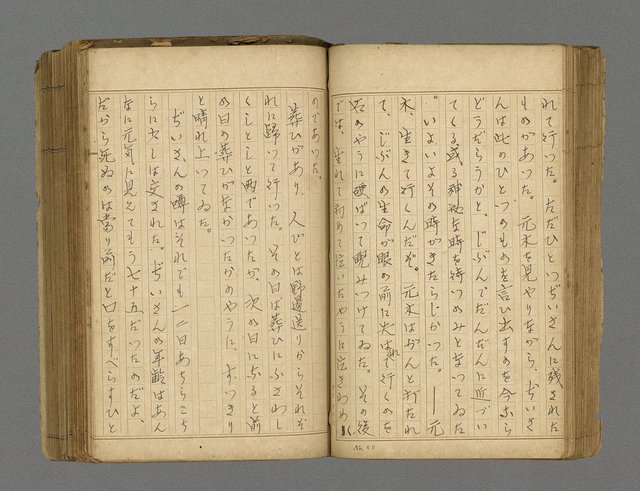 れて行つた。ただひとつぢいさんに残された
ものがあつた。元木を見やりながら、ぢいさ
んは此のひとつのものを言ひ出すのを今なら
どうだらうかと、じぶんでだんだんに近づい
てくる或る神秘な時を待つのみとなつてゐた
。いよいよその時がきたらしかつた。――元
木、生きて行くんだぞ。元木はがんと打たれ
て、じぶんの生命が眼の前に失はれて行くのを
石のやうに硬ばつて睨みつけてゐた。その後
では、生れて初めて泣いたやうに泣きわめく
のであつた。
葬ひがあり、人びとは野邊送りからそれぞ
れに歸つて行つた。その日は葬ひにふさわし
くしとしと雨であつたが、次の日になると前
の日の葬ひがなかつたかのやうに、すつきり
と晴れ上つてゐた。
ぢいさんの噂はそれでも一二日あちらこち
らに少しは交された。ぢいさんの年齢はあん
なに元気に見えてもう七十五だつたのだよ、
だから死ぬのは當り前だと口をすべらすひと
No. 40